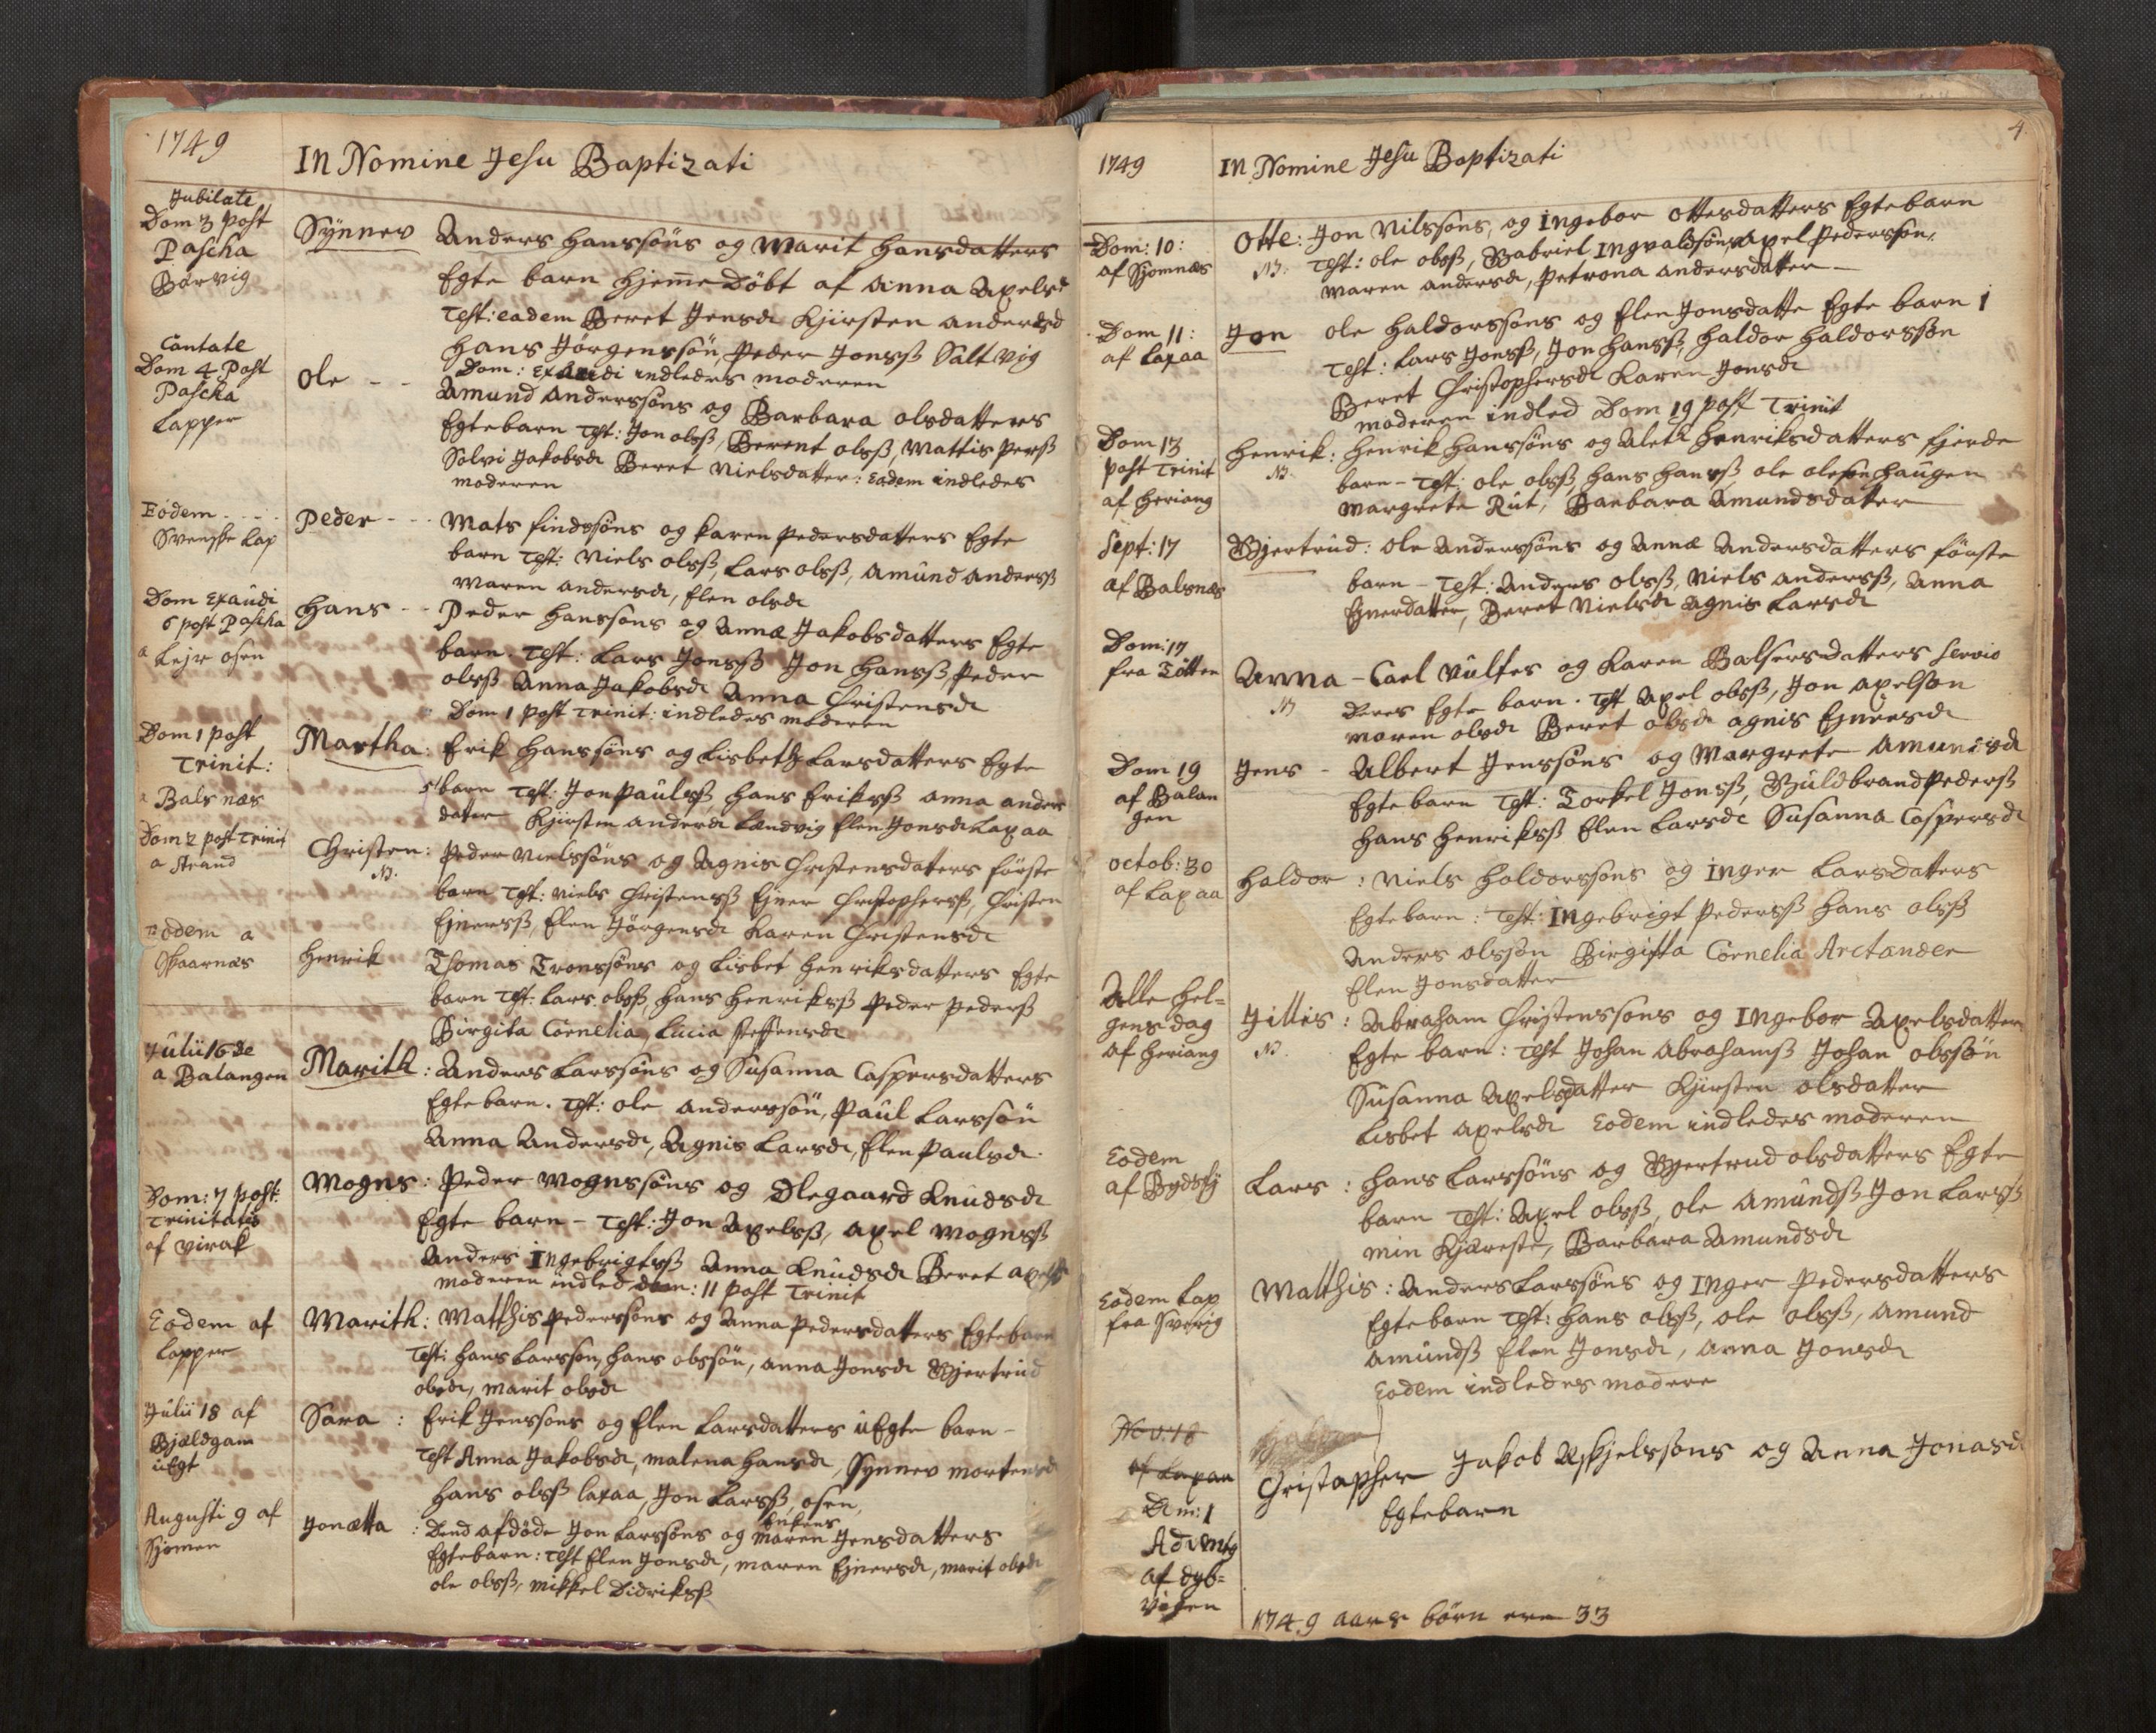 1749
In Nomine Jesu Baptizati
Jubilate
Dom 3 post
Pascha
Børvig
Synnev
Anders Hanssøns og Marit Hansdatters
Egte barn hjemedøbt af Anna Axelsd
Test: eadem Beret Jensd Kjirsten Andersd
Hans Jørgenssøn, Peder Jonsß Saltvig
Dom: Exaudi indledes moderen
Cantate
Dom 4 Post
Pascha
Lapper
Ole - -
Amund Anderssøns og Barbara Olsdatters
Egtebarn Test: Jon olsß, Berent olsß, Mattis Persß
Solvi Jakobsd Beret Nielsdatter: Eodem indledes
moderen
Eodem - - -
Svenske Lap
Peder - - -
Mats findssøns og Karen Pedersdatters Egte
barn Test: Niels olsß, Lars olsß, Amund Andersß
Maren Andersd, Elen olsd
Dom Exaudi
6 post Pascha
a Lejr osen
Hans - -
Peder Hanssøns og Annæ Jakobsdatters Egte
barn. Test: Lars Jonsß Jon Hansß Peder
olsß Anna Jakobsd Anna Christensd
Dom 1 Post Trinit: indledes moderen
Dom 1 post
Trinit:
a Balsnæs
Martha:
Erik Hanssøns og Lisbeth Larsdatters Egte
barn Test: Jon Paulsß Hans Eriksß Anna Anders
datter Kjirsten Andersd Landvig Elen Jonsd Laxaa
Dom 2 post Trinit
a Strand
Christen:
NB.
Peder Nielssøns og Agnis Christensdatters første
barn Test: Niels Christensß Ejner Christophersß, Christen
Ejnersß, Elen Jørgensd Karen Christensd
Eodem a
Skaarnæs
Henrik
Thomas Tronssøns og Lisbet Henriksdatters Egte
barn Test: Lars olsß, Hans Henriksß Peder Pedersß
Birgita Cornelia, Lucia Steffensd
Julii 16de
a Balangen
Marith:
Anders Larssøns og Susanna Caspersdatters
Egtebarn. Test: ole Anderssøn, Paul Larssøn
Anna Andersd, Agnis Larsd, Elen Paulsd.
Dom: 7 post
Trinitatis
af Virak
Mogns:
Peder Mognssøns og Olegaard Knudsd
Egte barn - Test: Jon Axelsß, Axel Mognsß
Anders Ingebrigtsß Anna Knudsd Beret Axelsd
moderen indled dom: 11 post Trinit
Eodem af
Lapper
Marith:
Matthis Pederssøns og Anna Pedersdatters Egtebarn
Test: Hans Larssøn, Hans olssøn, Anna Jonsd Gjertrud
olsd, Marit olsd
Julii 18 af
Gjældgam
uEgt
Sara :
Erik Jenssøns og Elen Larsdatters uEgte barn -
Test Anna Jakobsd, Malena Hansd, Synnev Mortensd
Hans olsß Laxaa, Jon Larsß, osen,
Augusti 9 af
Sjomen
Jonætta :
Enkens
Dend afdøde Jon Larssøns og Maren Jensdatters
Egtebarn: Test Elen Jonsd, Maren Ejnersd, Marit olsd
ole olsß, Mikkel Didriksß
4
1749
In Nomine Jesu Baptizati
Dom: 10:
af Sjomnæs
Otte:
NB.
Jon Nilssøns, og Ingebor Ottesdatters Egtebarn
Test: ole olsß, Gabriel Ingvaldsøn, Axel Pederssøn,
Maren Andersd, Petrona Andersdatter -
Dom 11:
af Laxaa
Jon
ole Haldorssøns og Elen Jonsdatte Egte barn
Test: Lars Jonsß, Jon Hansß, Haldor Haldorssøn
Beret Christophersd Karen Jonsd
moderen indled Dom 19 post Trinit
Dom 13
post Trinit
af Heriang
Henrik:
NB.
Henrik Hanssøns og Aleth Henriksdatters fjerde
barn - Test: ole olsß, Hans Hansß, ole olssøn Haugen
Margrete Rut, Barbara Amundsdatter
Sept: 17
af Balsnæs
Gjertrud:
ole Anderssøns og Annæ Andersdatters første
barn - Test: Anders olsß, Niels Andersß, Anna
Ejnersdatter, Beret Nielsd Agnis Larsd
Dom: 17
fra Tøtten
Anna -
NB
Carl Vulfes og Karen Balsersdatters
Deres Egte barn. Test Axel olsß, Jon Axelsøn
Maren olsd Beret olsd Agnis Ejnersd
Dom 19
af Balan
gen
Jens -
Albert Jenssøns og Margrete Amundsd
Egtebarn Test: Torkel Jonsß, Guldbrand Pedersß
Hans Henriksß Elen Larsd Susanna Caspersd
Octob: 30
af Laxaa
Haldor :
Niels Haldorssøns og Inger Larsdatters
Egtebarn: Test: Ingebrigt Pedersß Hans olsß
Anders olssøn Birgitta Cornelia Arctander
Elen Jonsdatter
Alle Hel=
gens dag
af Heriang
Jillis :
NB.
Abraham Christenssøns og Ingebor Axelsdatters
Egte barn: Test Johan Abrahamsß Johan olssøn
Susanna Axelsdatter Kjirsten olsdatter
Lisbet Axelsd Eodem indledes moderen
Eodem
af Bødskj
Lars :
Hans Larssøns og Gjertrud olsdatters Egte
barn Test: Axel olsß, ole Amundsß Jon Larsß
min Kjæreste, Barbara Amundsd
Eodem Lap
fra Sverig
Matthis:
Anders Larssøns og Inger Pedersdatters
Egtebarn Test: Hans olsß, ole olsß, Amund
Amundsß Elen Jonsd, Anna Jonsd
Eodem indledes modere
Nov. 18
af Laxaa
Dom: 1
Advents
af dyb=
vigen
Christopher
Jakob Askjelssøns og Anna Jonasd
Egtebarn
1749 aars børn ere 33